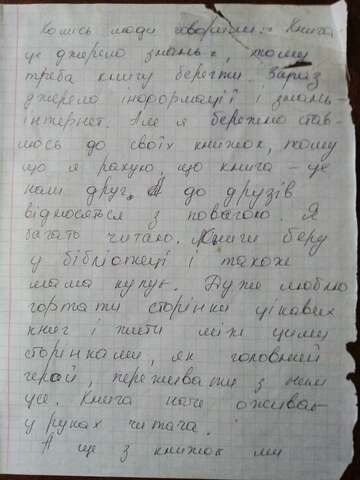 Колись люди говорили:- Книга
це джерело знань-, тому
треба книгу берегти. Зараз
джерело інформації і знань-
інтернет. Але я бережно став-
люсь до своїх книжок, тому
що я рахую, що книга - це
наш друг. А до друзів
відносяться з повагою. Я
багать читаю. Книги беру
у бібліотеці і також
мама купує. Дуже люблю
гортати сторінки цікавих
книг і жити між цими
сторінками, як головний
герой, переживати з ним
усе. Книга наче оживає
у руках читача.
А ще з книжок ми